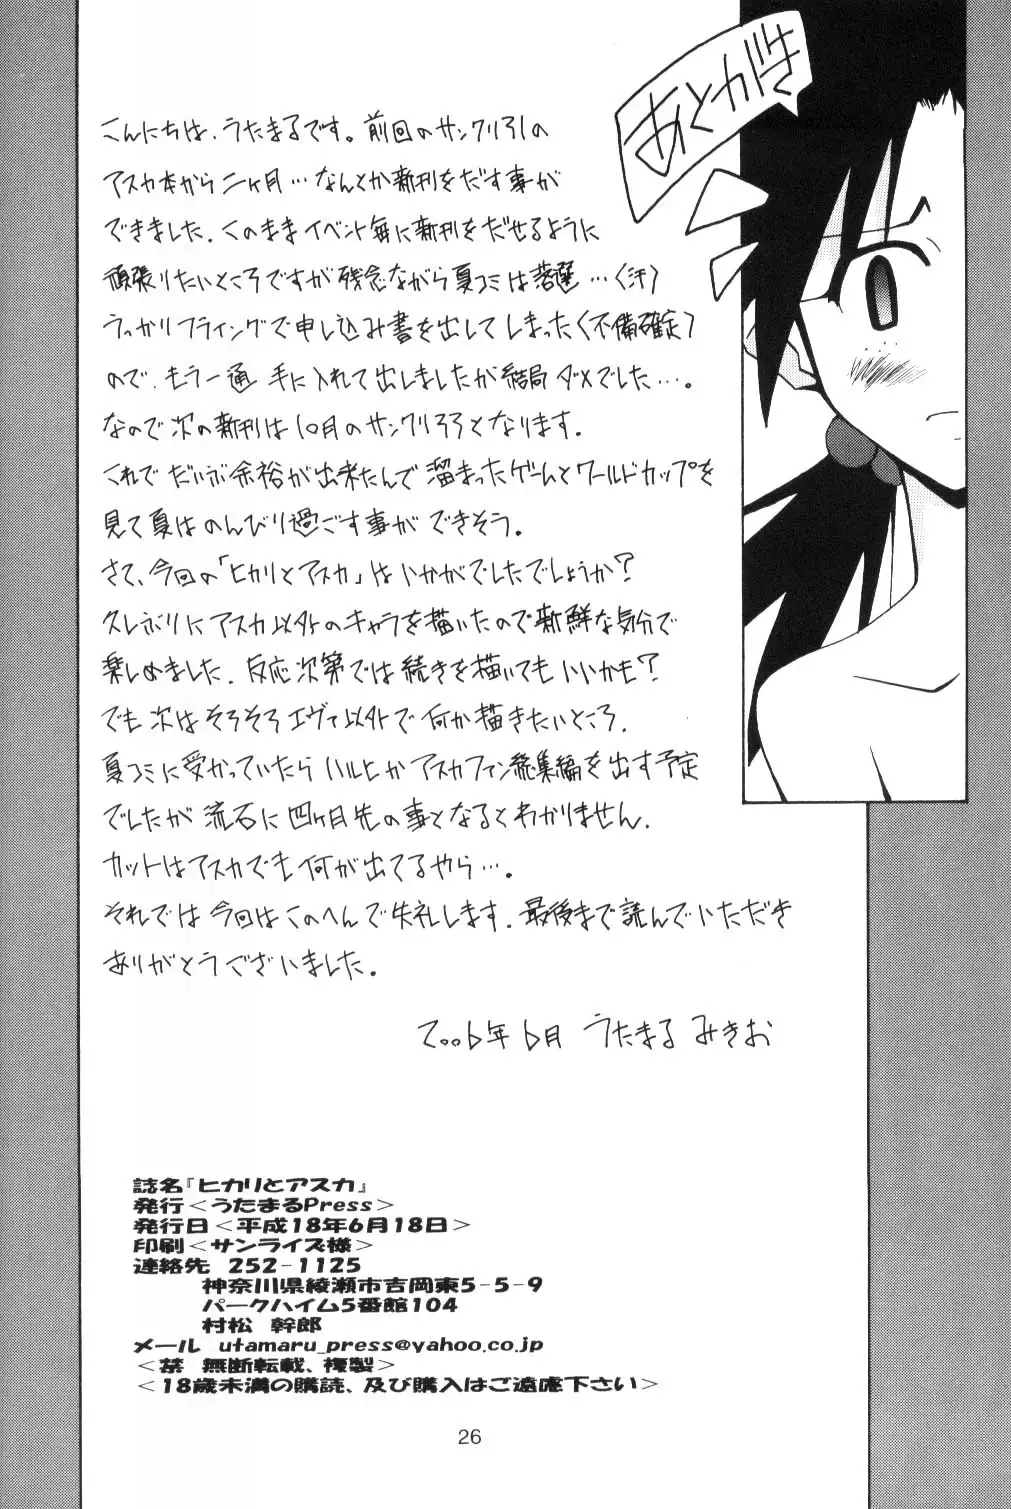 あとがき
こんにちは、うたまるです。前回のサンクリ31の
アスカ本から二ヶ月…なんとか新刊をだす事が
できました．このままイベント毎に新刊をだせるように
頑張りたいところですが残念ながら夏コミは落選…(汗)
うっかりフライングで申し込み書を出してしまった(不備確定)
ので、もう一通 手に入れて出しましたが結局ダメでした…。
なので次の新刊は10月のサンクリ33となります．
これでだいぶ余裕が出来たんで溜まったゲームとワールドカップを
見て夏はのんびり過ごす事ができそう。
さて、今回の「ヒカリとアスカ」はいかがでしたでしょうか？
久しぶりにアスカ以外のキャラを描いたので新鮮な気分で
楽しめました．反応次第では続きを描いてもいいかも？
でも次はそろそろエヴァ以外で何か描きたいところ．
夏コミに受かっていたらハルヒかアスカファン総集編を出す予定
でしたが流石に四ヶ月先の事となるとわかりません．
カットはアスカでも何が出てるやら…。
それでは今回はこのへんで失礼します．最後まで読んでいただき
ありがとうございました．
2006年6月 うたまる みきお
誌名『ヒカリとアスカ』
発行＜うたまるPress＞
発行日＜平成18年6月18日＞
印刷＜サンライズ様＞
連絡先 252-1125
神奈川県綾瀬市吉岡東5-5-9
パークハイム5番館104
村松 幹郎
メール utamaru_press@yahoo.co.jp
＜禁 無断転載、複製＞
＜18歳未満の購読、及び購入はご遠慮下さい＞
26